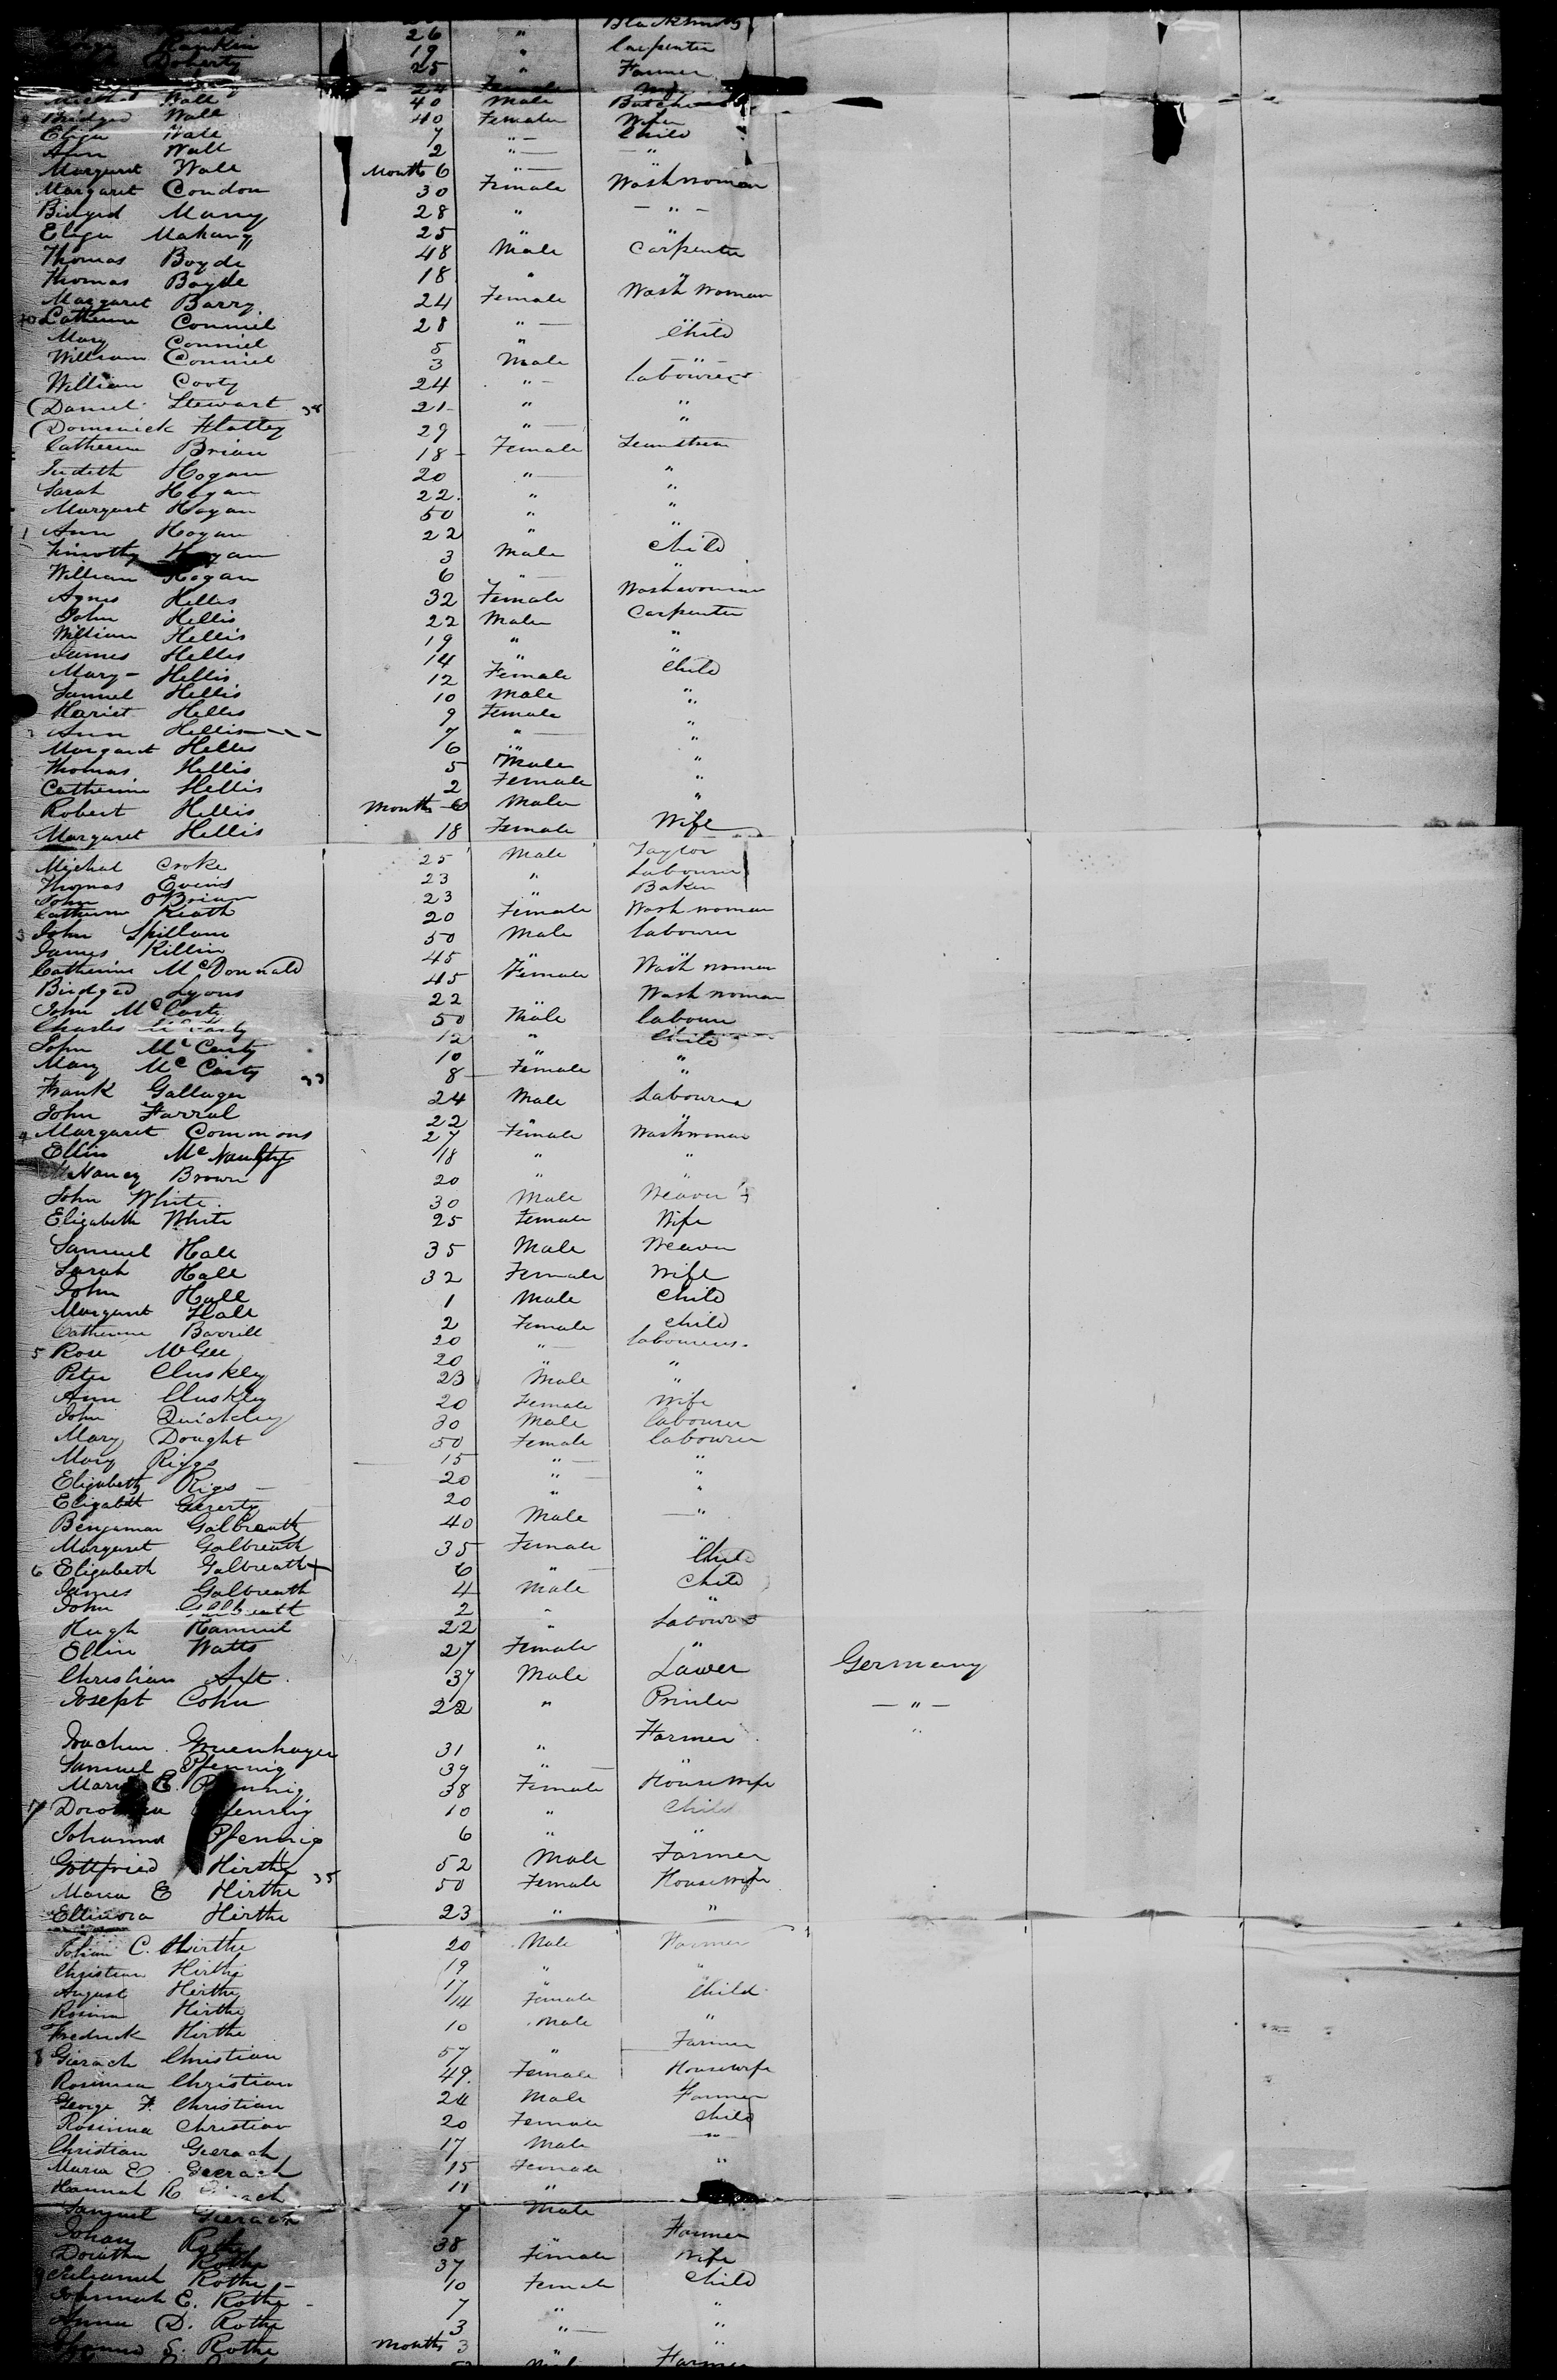 Blacksmith
26 "
Rankin 19 " Carpenter
Doherty 25 " Farmer
24 Female Wife
Michal Wall 40 Male Butcher
Bridged Wall 40 Female Wife
Eliza Wall 7 " Child
Ann Wall 2 " "
Margaret Wall Month 6 "
Margaret Condon 30 Female Washwoman
Bridged Many 28 " "
Eliza Mahany 25 " "
Thomas Boyde 48 Male Carpenter
Thomas Boyde 18 " "
Margaret Barry 24 Female Wash Woman
Catherine Conniel 28 " "
Mary Conniel 5 " Child
William Conniel 3 Male "
William Cooty 24 " labourer
Daniel Stewart 38 21 " "
Dominick Flattey 29 " "
Catherine Brian 18 Female Seamstress
Judeth Hogan 20 " "
Sarah Hogan 22 " "
Margaret Hogan 50 " "
1 Ann Hogan 22 " "
Timothy Hogan 3 Male Child
William Hogan 6 " "
Agnes Hellis 32 Female Washwoman
John Hellis 22 Male Carpenter
William Hellis 19 " "
James Hellis 14 " "
Mary Hellis 12 Female Child
Samuel Hellis 10 Male "
Hariet Hellis 9 Female "
Ann Hellis 7 " "
Margaret Hellis 6 "
Thomas Hellis 5 Male "
Catherine Hellis 2 Female "
Robert Hellis Months 6 Male "
Margaret Hellis 18 Female Wife
Michal Croke 25 Male Taylor
Thomas Evins 23 " Labourer
John OBrian 23 " Baker
Catherine Keath 20 Female Wash woman
3 John Spillane 50 Male labourer
James Killin 45 " "
Catherine McDonnald 45 Female Wash woman
Bridged Lyons 22 " Wash woman
John McCarty 50 Male labourer
Charles McCarty 12 " Child
John McCarty 10 " "
Mary McCarty 33 8 Female "
Frank Gallager 24 Male Labourer
John Farral 22 " "
4 Margaret Commons 27 Female Washwoman
Ellin McNaulty 18 " "
Nancy Brown 20 " "
John White 30 Male Weaver
Elizabeth White 25 Female Wife
Samuel Hall 35 Male Weaver
Sarah Hall 32 Female Wife
John Hall 1 Male Child
Margaret Hall 2 Female Child
Catherine Barrill 20 " labourers
5 Rose McGee 20 " "
Peter Cluskley 23 Male "
Ann Cluskley 20 Female Wife
John Quickley 30 Male labourer
Mary Dought 50 Female labourer
Mary Riggs 15 " "
Elizabeth Rigs 20 " "
Elizabeth Gererty 20 " "
Benjaman Galbreath 40 Male "
Margaret Galbreath 35 Female "
6 Elizabeth Galbreath + 6 " Child
James Galbreath 4 Male Child
John Galbreath 2 " "
Hugh Hammil 22 " Labourer
Ellin Watts 27 Female "
Christian Axt 37 Male Lawer Germany
Joseph Cohn 22 " Printer "
Joachim Gruenhagen 31 " Farmer "
Samuel Pfennig 39 " "
Maria E. Pfennig 38 Female Housewife
7 Dorothea Pfennig 10 " Child
Johanna Pfennig 6 " "
Gottfried Hirthe 35 52 Male Farmer
Maria E Hirthe 50 Female Housewife
Ellinora Hirthe 23 " "
Johann C. Hirthe 20 Male Farmer
Christian Hirthe 19 " "
August Hirthe 17 " Child
Rosina Hirthe 14 Female
Fredrick Hirthe 10 Male "
8 Gierach Christian 57 " Farmer
Rosinna Christian 49 Female Housewife
George F. Christian 24 Male Farmer
Rosinna Christian 20 Female Child
Christian Gierach 17 Male "
Maria E Gierach 15 Female "
Hannah R 11 "
Samuel Gierach 7 Male
Johan Rothe 38 " Farmer
Dorothea Rothe 37 Female Wife
Rothe 10 Female Child
Johannah E. Rothe 7 " "
Anna D. Rothe 3 " "
S. Rothe months 3 " "
Farmer